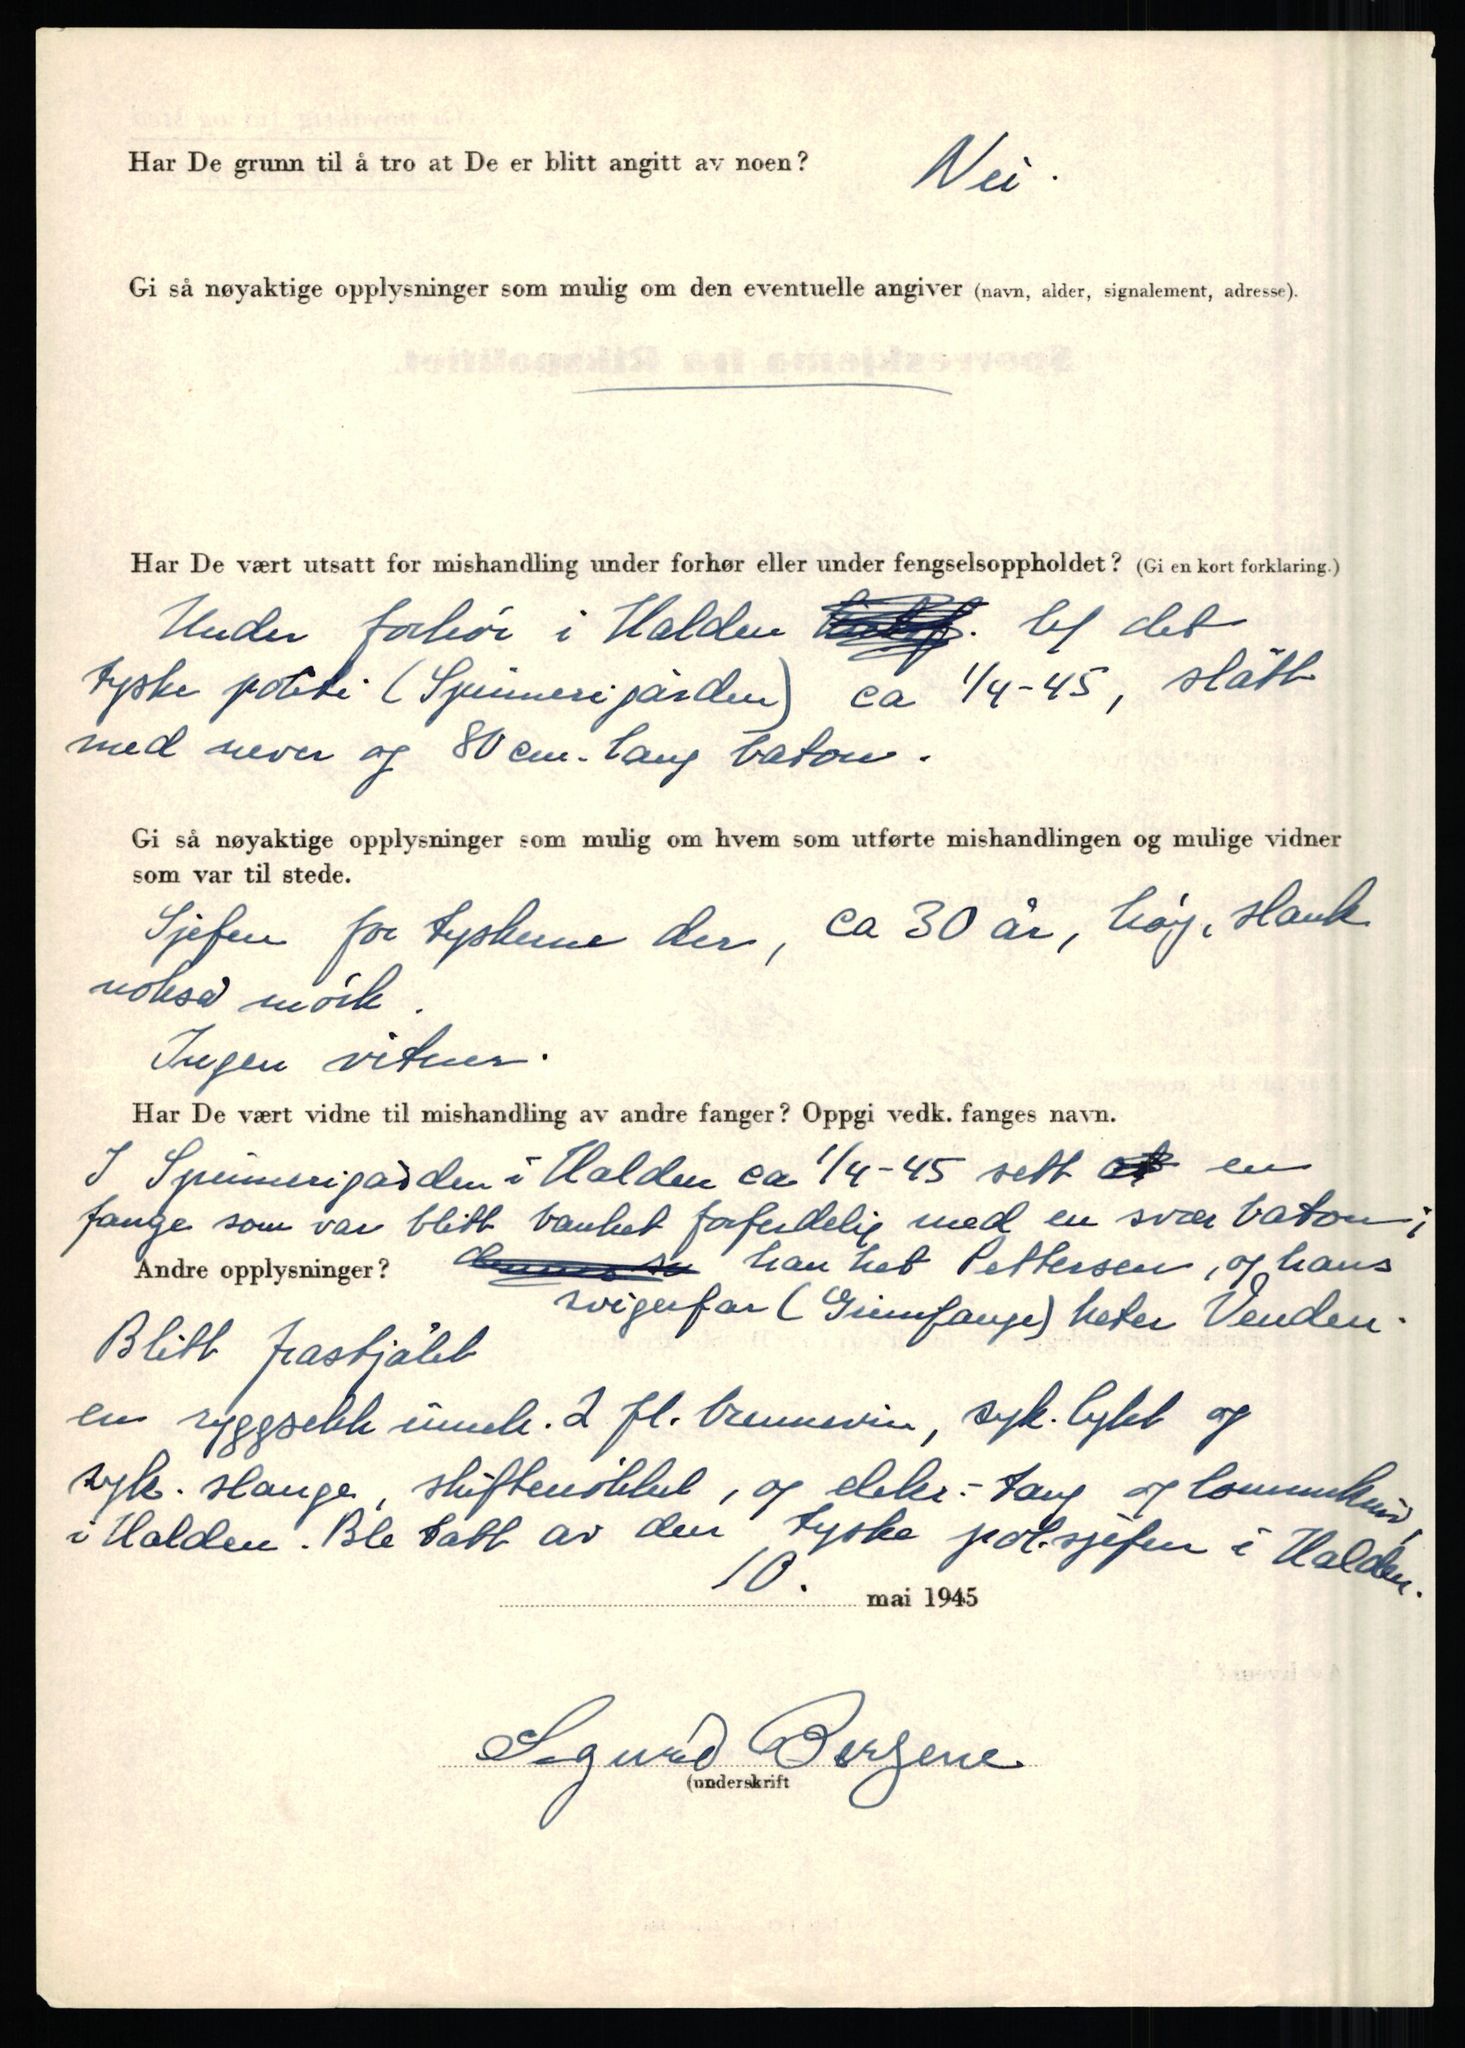 Har De grunn til å tro at De er blitt angitt av noen?
Nei.
Gi så nøyaktige opplysninger som mulig om den eventuelle angiver (navn, alder, signalement, adresse).
Har De vært utsatt for mishandling under forhør eller under fengselsoppholdet? (Gi en kort forklaring.)
Under forhör i Halden hos det
tyske politi (Spinnerigården) ca 1/4-45, slått
med never og 80 cm. lang baton.
Gi så nøyaktige opplysninger som mulig om hvem som utførte mishandlingen og mulige vidner
som var til stede.
Sjefen for tyskerne der, ca 30 år, høy, slank
nokså mörk.
Ingen vitner.
Har De vært vidne til mishandling av andre fanger? Oppgi vedk. fanges navn.
I Spinnerigården i Halden ca 1/4-45 sett en
fange som var blitt banket forferdelig med en svær baton;
Andre opplysninger?
han het Pettersen, og hans
svigerfar (Grinifange) heter Venden.
Blitt frastjålet
en ryggsekk inneh. 2 fl. brennevin, syk. lykt og
syk. slange, skiftenökkel, og elektr.-tang og lommekniv,
i Halden. Ble tatt av den tyske pol.sjefen i Halden.
10. mai 1945
Sigurd Borgene
(underskrift